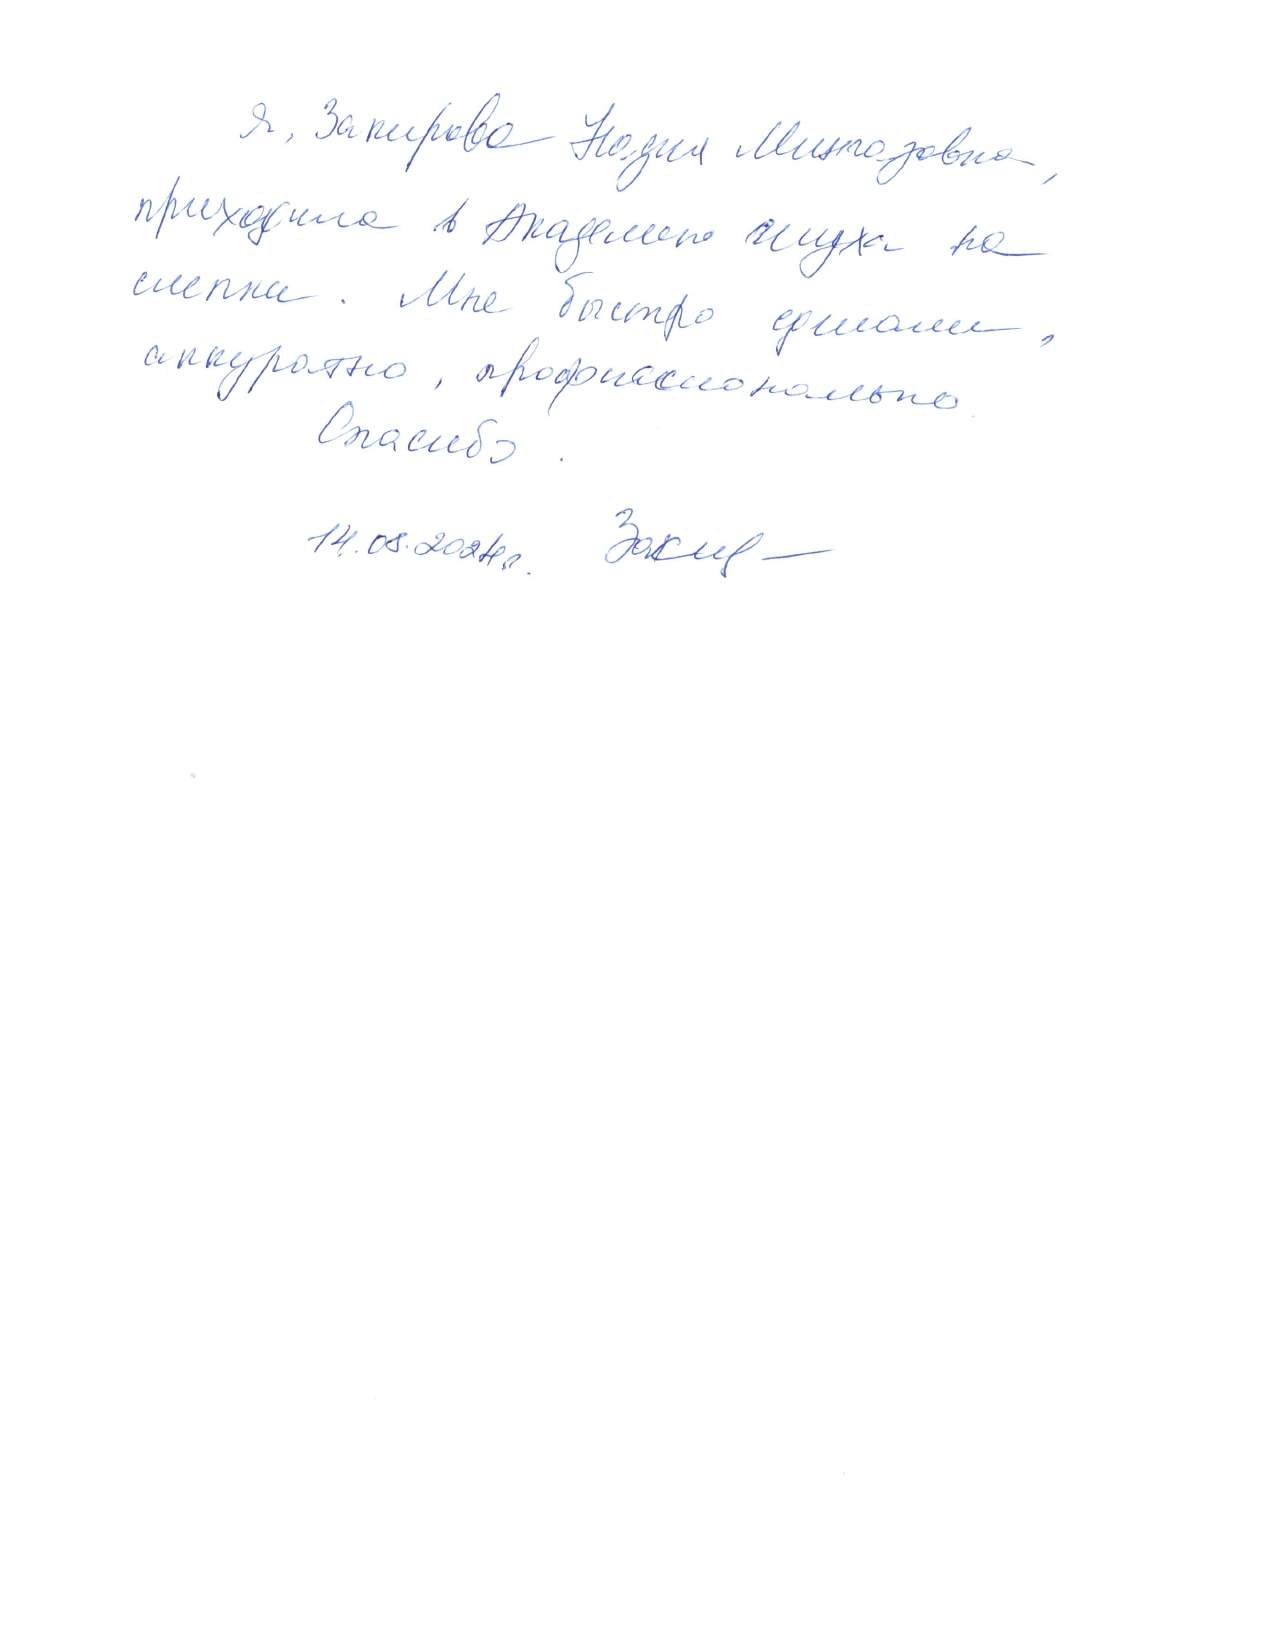 Я, Закирова Надия Мингазовна,
приходила в Академию слуха на
слепки. Мне быстро сделали,
аккуратно, профиессионально.
Спасибо.
14.08.2024г. Закир